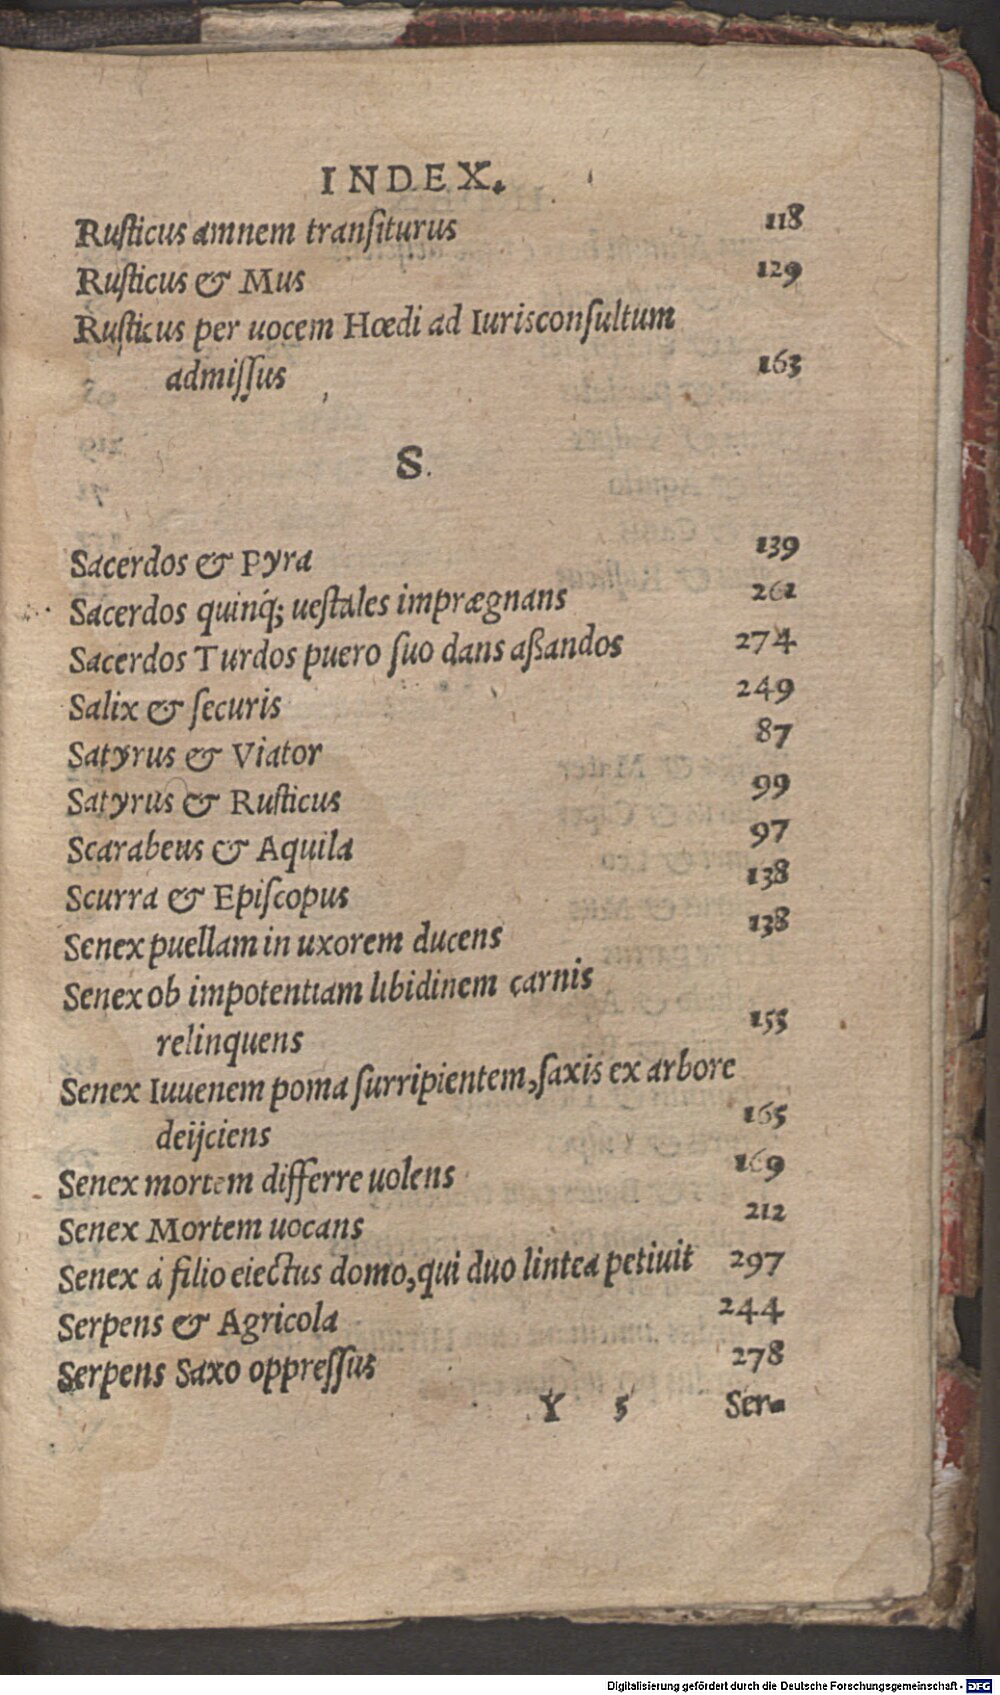 INDEX.
Ruſticus amnem tranſiturus 118
Ruſticus & Mus 129
Ruſticus per uocem Hœdi ad Iurisconſultum
admiſſus 163
S.
Sacerdos & Pyra 139
Sacerdos quinq́; ueſtales imprægnans 261
Sacerdos Turdos puero ſuo dans aßandos 274
Salix & ſecuris 249
Satyrus & Viator 87
Satyrus & Ruſticus 99
Scarabeus & Aquila 97
Scurra & Epiſcopus 138
Senex puellam in uxorem ducens 138
Senex ob impotentiam libidinem carnis
relinquens 155
Senex Iuuenem poma ſurripientem, ſaxis ex arbore
deijciens 165
Senex mortem differre uolens 169
Senex Mortem uocans 212
Senex à filio eiectus domo, qui duo lintea petiuit 297
Serpens & Agricola 244
Serpens Saxo oppreſſus 278
Y 5 Ser-
Digitalisierung gefördert durch die Deutsche Forschungsgemeinschaft - DFG